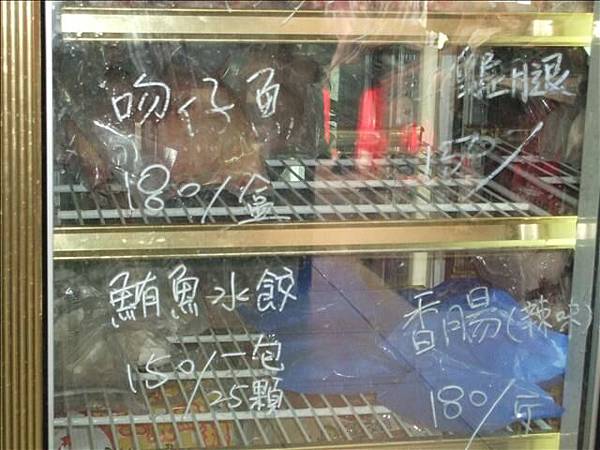 吻仔魚
180/盒
雞腿
150/
鮪魚水餃
150/一包
25顆
香腸(辣味)
180/斤